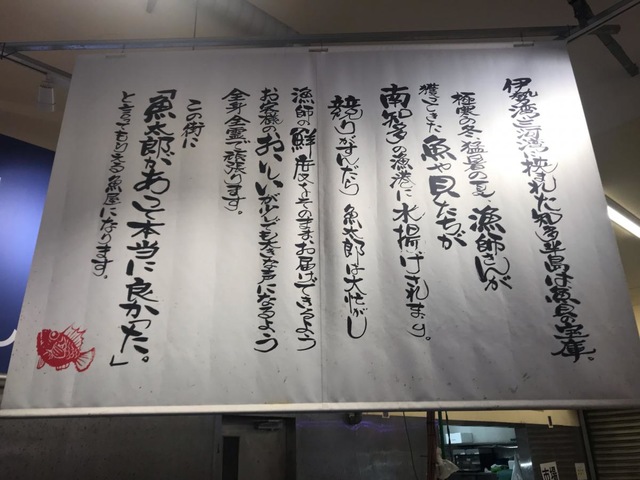 伊勢湾と三河湾に挟まれた知多半島は魚貝の宝庫。
極寒の冬、猛暑の夏、漁師さんが
獲ってきた魚や貝たちが
南知多の漁港に水揚げされます。
競りがすんだら魚太郎は大忙がし
漁師の鮮度をそのままお届けできるよう
お客様のおいしいが少しでも大きな声になるよう
全身全霊で頑張ります。
この街に
「魚太郎があって本当に良かった。」
と言ってもらえる魚屋になります。
市場